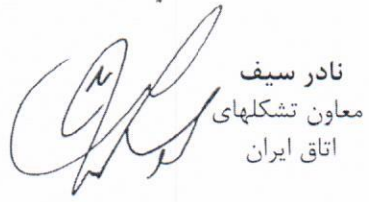 نادر سیف
معاون تشکلهای
اتاق ایران